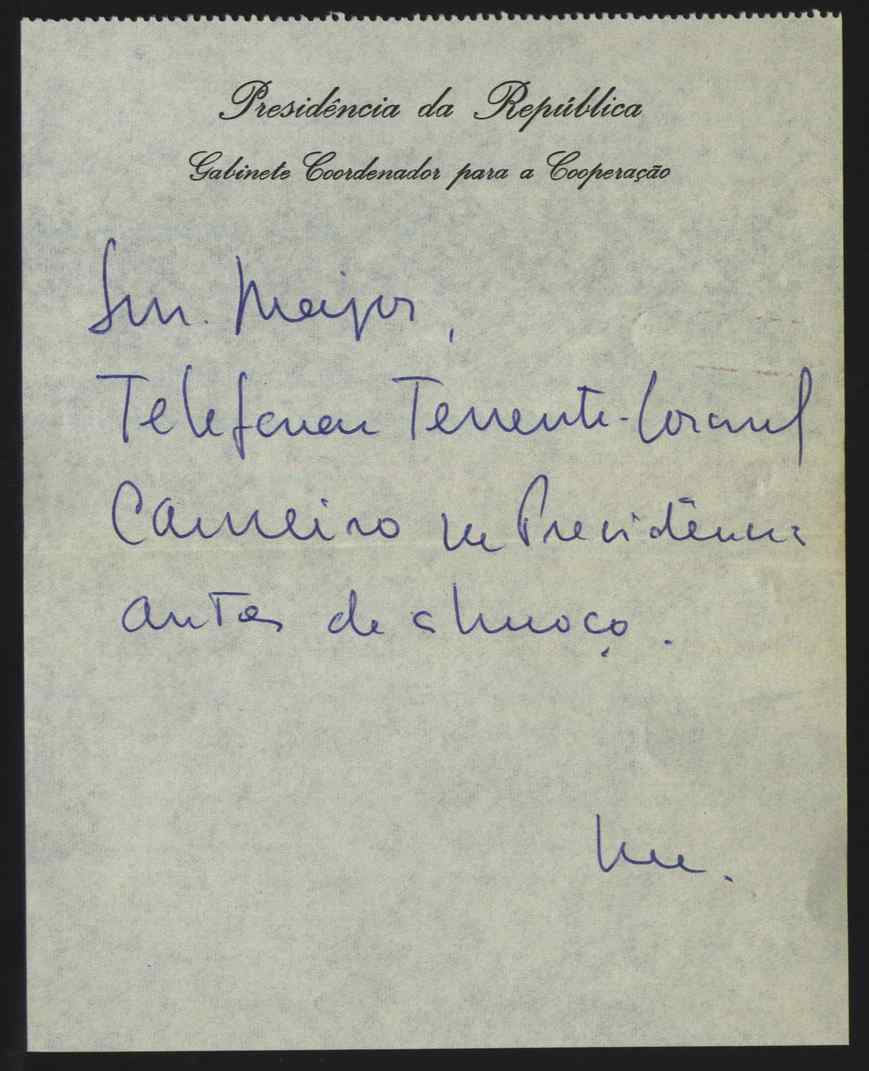 Presidência da República
Gabinete Coordenador para a Cooperação
Snr. Major,
Telefonou Tenente-Coronel
Carneiro da Presidência
antes de almoço.